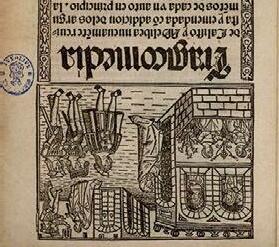 Tragicomedia
De Calisto y Melibea nueuamẽte reui-
sta y emendada cõ addicion delos argu
mẽtos de cada vn auto en principio. La